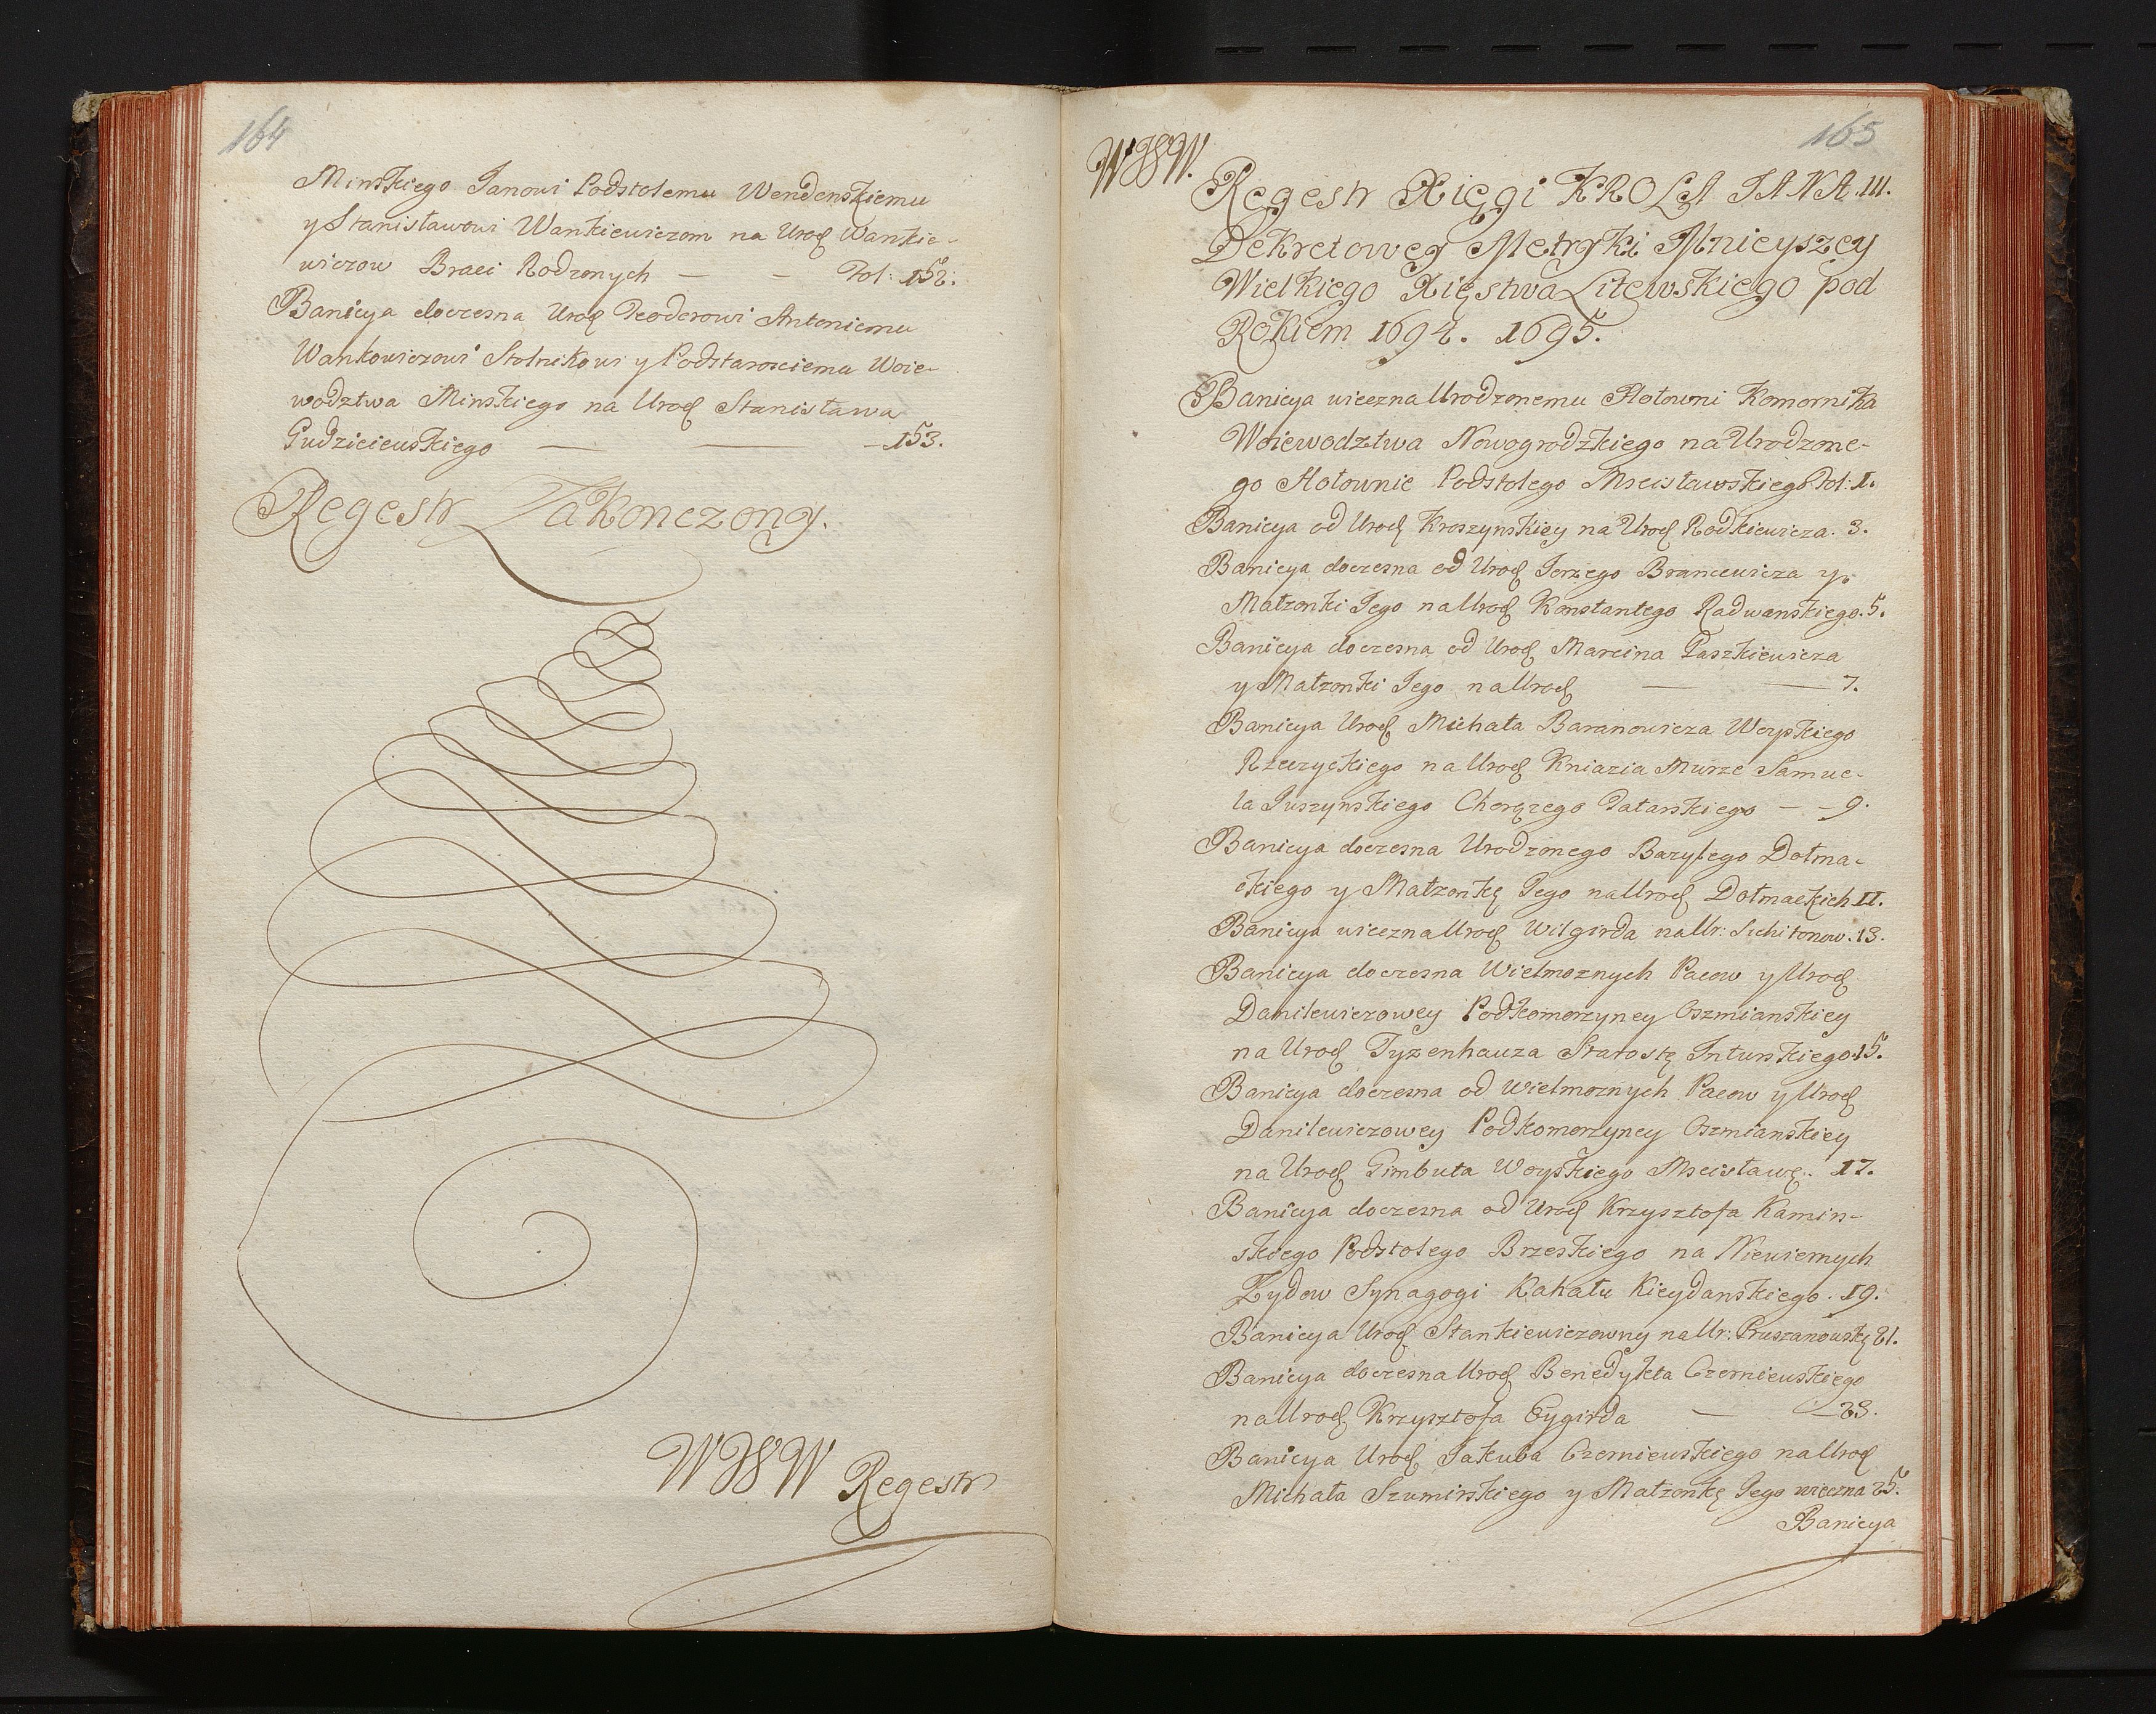 164
Minskiego Janowi Podstolemu Wendenskiemu
y Stanisławowi Wankiewiczom na Urod Wankie-
wiczow Braci Rodzonych — — Fol: 152.
Banicya doczesna Urod Teodorowi Antoniemu
Wankowiczowi Stolnikowi y Podstarosciemu Woie-
wodztwa Minskiego na Urod Stanisława
Gudziciewskiego — — 153.
Regestr Zakonczony.
Regestr
165
Regestr Xięgi KROLA JANA III.
Dekretowey Metryki Mnieyszey
Wielkiego Xięstwa Litewskiego pod
Rokiem 1694. 1695.
Banicya wieczna Urodzonemu Hołowni Komornika
Woiewodztwa Nowogrodzkiego na Urodzone-
go Hołownie Podstolego Mscisławskiego Fol: 1.
Banicya od Urod Kroszynskiey na Urod Rodkiewicza. 3.
Banicya doczesna od Urod Jerzego Brancewicza y
Małzonki Jego na Urod Konstantego Radwanskiego. 5.
Banicya doczesna od Urod Marcina Paszkiewicza
y Małzonki Jego na Urod — — 7.
Banicya Urod Michała Baranowicza Woyskiego
Rzeczyckiego na Urod Kniazia Murze Samue-
la Juszynskiego Chorązego Tatarskiego — — 9.
Banicya doczesna Urodzonego Bazylego Dołma-
ckiego y Małzonkę Jego na Urod Dołmackich 11.
Banicya wieczna Urod Wilgirda na Ur: Sichitonow. 13.
Banicya doczesna Wielmoznych Pacow y Urod
Danilewiczowey Podkomorzyney Oszmianskiey
na Urod Tyzenhauza Starostę Inturskiego. 15.
Banicya doczesna od Wielmoznych Pacow y Urod
Danilewiczowey Podkomorzyney Oszmianskiey
na Urod Gimbuta Woyskiego Mscisławę. 17.
Banicya doczesna od Urod Krzysztofa Kamin-
skiego Podstolego Brzeskiego na Niewiernych
Zydow Synagogi Kahału Kieydanskiego. 19.
Banicya Urod Stankiewiczowny na Ur: Pruszanowskę 21.
Banicya doczesna Urod Benedykta Czerniewskiego
na Urod Krzysztofa Eygirda — — 23.
Banicya Urod Jakuba Czerniewskiego na Urod
Michała Szumirskiego y Małzonkę Jego wieczna 25.
Banicya